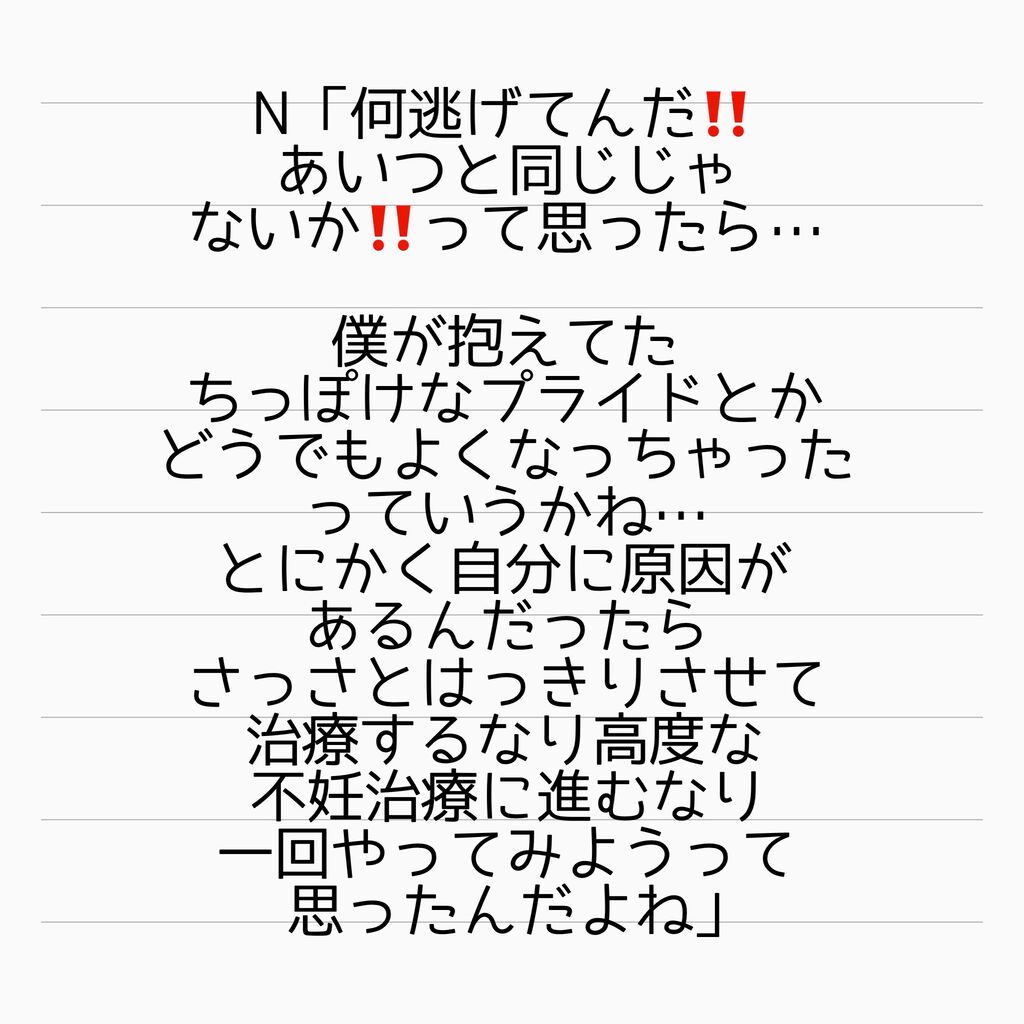 N「何逃げてんだ‼️
あいつと同じじゃ
ないか‼️って思ったら…
僕が抱えてた
ちっぽけなプライドとか
どうでもよくなっちゃった
っていうかね…
とにかく自分に原因が
あるんだったら
さっさとはっきりさせて
治療するなり高度な
不妊治療に進むなり
一回やってみようって
思ったんだよね」